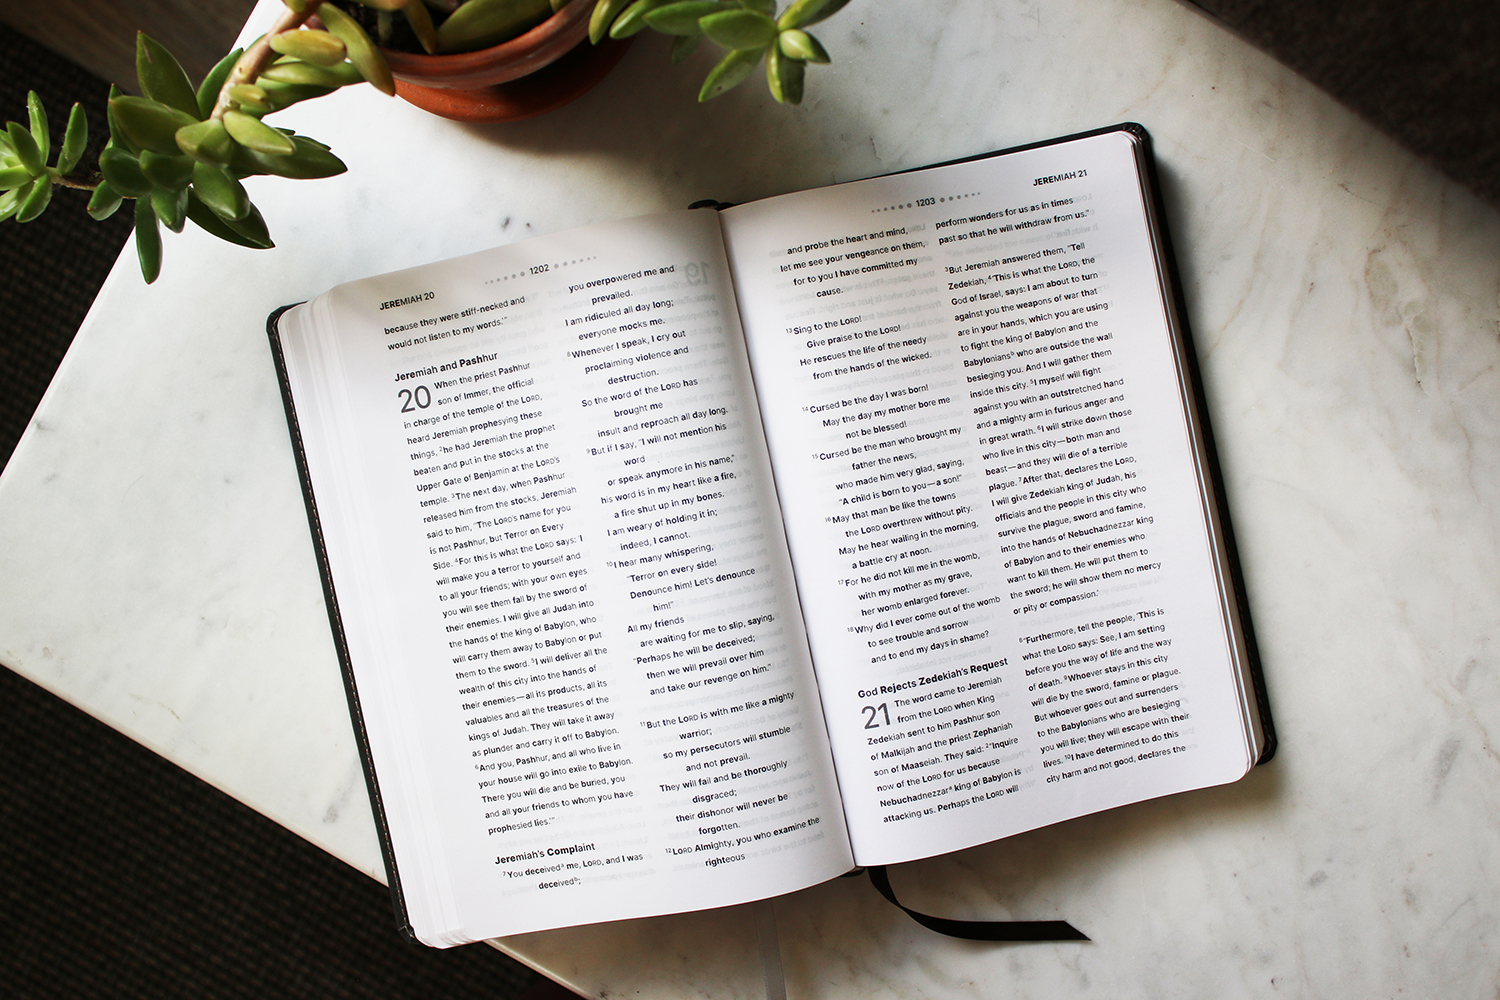 1202
JEREMIAH 20
because they were stiff-necked and
would not listen to my words.’”
Jeremiah and Pashhur
20 When the priest Pashhur
son of Immer, the official
in charge of the temple of the LORD,
heard Jeremiah prophesying these
things, ²he had Jeremiah the prophet
beaten and put in the stocks at the
Upper Gate of Benjamin at the LORD’s
temple. ³The next day, when Pashhur
released him from the stocks, Jeremiah
said to him, “The LORD’s name for you
is not Pashhur, but Terror on Every
Side. ⁴For this is what the LORD says: ‘I
will make you a terror to yourself and
to all your friends; with your own eyes
you will see them fall by the sword of
their enemies. I will give all Judah into
the hands of the king of Babylon, who
will carry them away to Babylon or put
them to the sword. ⁵I will deliver all the
wealth of this city into the hands of
their enemies—all its products, all its
valuables and all the treasures of the
kings of Judah. They will take it away
as plunder and carry it off to Babylon.
⁶And you, Pashhur, and all who live in
your house will go into exile to Babylon.
There you will die and be buried, you
and all your friends to whom you have
prophesied lies.’”
Jeremiah’s Complaint
⁷You deceivedᵃ me, LORD, and I was
deceivedᵇ;
you overpowered me and
prevailed.
I am ridiculed all day long;
everyone mocks me.
⁸Whenever I speak, I cry out
proclaiming violence and
destruction.
So the word of the LORD has
brought me
insult and reproach all day long.
⁹But if I say, “I will not mention his
word
or speak anymore in his name,”
his word is in my heart like a fire,
a fire shut up in my bones.
I am weary of holding it in;
indeed, I cannot.
¹⁰I hear many whispering,
“Terror on every side!
Denounce him! Let’s denounce
him!”
All my friends
are waiting for me to slip, saying,
“Perhaps he will be deceived;
then we will prevail over him
and take our revenge on him.”
¹¹But the LORD is with me like a mighty
warrior;
so my persecutors will stumble
and not prevail.
They will fail and be thoroughly
disgraced;
their dishonor will never be
forgotten.
¹²LORD Almighty, you who examine the
righteous
1203
JEREMIAH 21
and probe the heart and mind,
let me see your vengeance on them,
for to you I have committed my
cause.
¹³Sing to the LORD!
Give praise to the LORD!
He rescues the life of the needy
from the hands of the wicked.
¹⁴Cursed be the day I was born!
May the day my mother bore me
not be blessed!
¹⁵Cursed be the man who brought my
father the news,
who made him very glad, saying,
“A child is born to you—a son!”
¹⁶May that man be like the towns
the LORD overthrew without pity.
May he hear wailing in the morning,
a battle cry at noon.
¹⁷For he did not kill me in the womb,
with my mother as my grave,
her womb enlarged forever.
¹⁸Why did I ever come out of the womb
to see trouble and sorrow
and to end my days in shame?
God Rejects Zedekiah’s Request
21 The word came to Jeremiah
from the LORD when King
Zedekiah sent to him Pashhur son
of Malkijah and the priest Zephaniah
son of Maaseiah. They said: ²“Inquire
now of the LORD for us because
Nebuchadnezzarᵃ king of Babylon is
attacking us. Perhaps the LORD will
perform wonders for us as in times
past so that he will withdraw from us.”
³But Jeremiah answered them, “Tell
Zedekiah, ⁴‘This is what the LORD, the
God of Israel, says: I am about to turn
against you the weapons of war that
are in your hands, which you are using
to fight the king of Babylon and the
Babyloniansᵇ who are outside the wall
besieging you. And I will gather them
inside this city. ⁵I myself will fight
against you with an outstretched hand
and a mighty arm in furious anger and
in great wrath. ⁶I will strike down those
who live in this city—both man and
beast—and they will die of a terrible
plague. ⁷After that, declares the LORD,
I will give Zedekiah king of Judah, his
officials and the people in this city who
survive the plague, sword and famine,
into the hands of Nebuchadnezzar king
of Babylon and to their enemies who
want to kill them. He will put them to
the sword; he will show them no mercy
or pity or compassion.’
⁸“Furthermore, tell the people, ‘This is
what the LORD says: See, I am setting
before you the way of life and the way
of death. ⁹Whoever stays in this city
will die by the sword, famine or plague.
But whoever goes out and surrenders
to the Babylonians who are besieging
you will live; they will escape with their
lives. ¹⁰I have determined to do this
city harm and not good, declares the